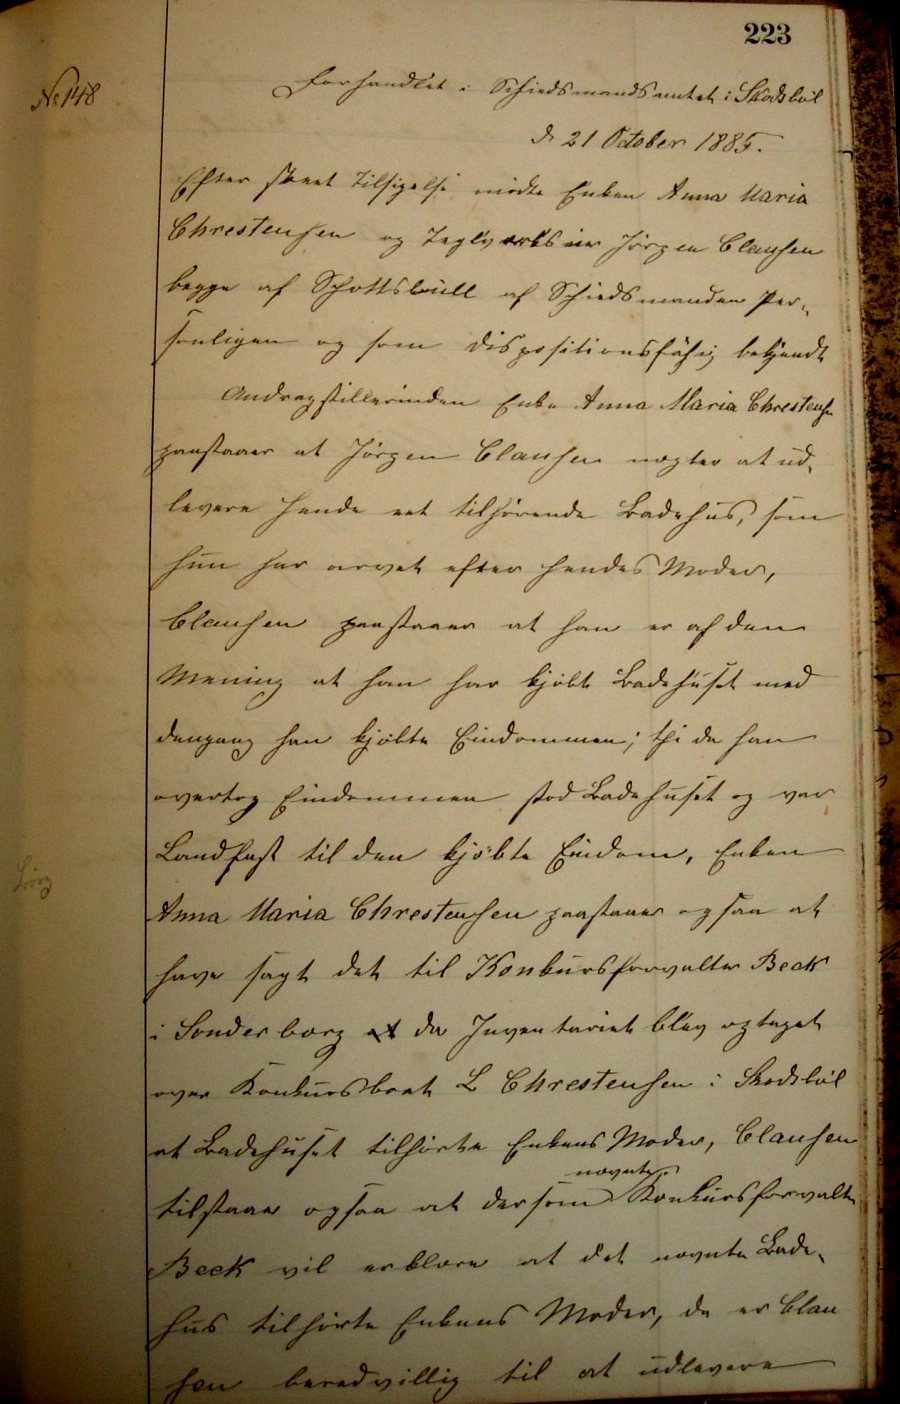 223
No 148
Forhandlet i Schiedsmandsamtet i Skodsböl
d 21 October 1885.
Efter skeet Tilsigelse mödte Enken Anna Maria
Chrestensen og Teglværkseier Jörgen Clausen
begge af Schottsbüll af Schiedsmanden Per-
sonligen og som dispositionsfähig bekjendt
Andragstillerinden Enke Anna Maria Chrestensen
paastaaer at Jörgen Clausen nægter at ud-
levere hende eet tilhörende Badehus, som
hun har arvet efter hendes Moder,
Clausen paastaaer at han er af den
Mening at han har kjöbt Badehuset med
dengang han kjöbte Eindommen; thi da han
overtog Eindommen stod Badehuset og var
Landfast til den kjöbte Eindom, Enken
Anna Maria Chrestensen paastaaer ogsaa at
have sagt det til Konkursforvalter Beck
i Sonderborg da Inventariet blev optaget
over Konkursboet L Chrestensen i Skodsböl
at Badehuset tilhörte Enkens Moder, Clausen
nævnte
tilstaaer ogsaa at dersom Konkursforvalter
Beck vil erklære at det nævnte Bade-
hus tilhörte Enkens Moder, da er Clau
sen beredvillig til at udlevere